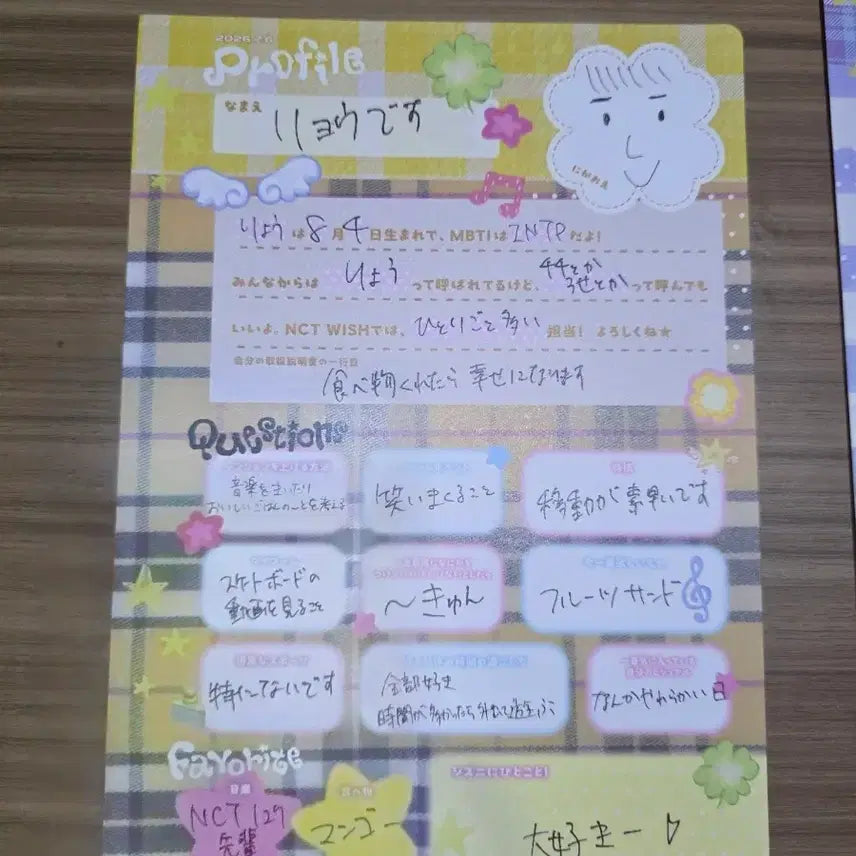 2026.7.6
Profile
なまえ
リョウです
にがおえ
りょうは8月4日生まれで、MBTIはINTPだよ!
みんなからは りょう って呼ばれてるけど、44とか
うせとかって呼んでも
いいよ。NCT WISHでは、ひとりごと多い担当! よろしくね★
自分の取扱説明書の一行目
食べ物くれたら 幸せになります
Questions
音楽をきいたり
おいしいごはんのことを考える
笑いまくること
特技
移動が素早いです
スケートボードの
動画を見ること
〜きゅん
フルーツサンド
特にてないです
全部好き
時間が多かったら外で遊ぶ
一番気に入っている
自分のビジュアル
なんかやわらかい日
Favorite
音楽
NCT 127
先輩
食べ物
マンゴー
シズニにひとこと!
大好きー♪